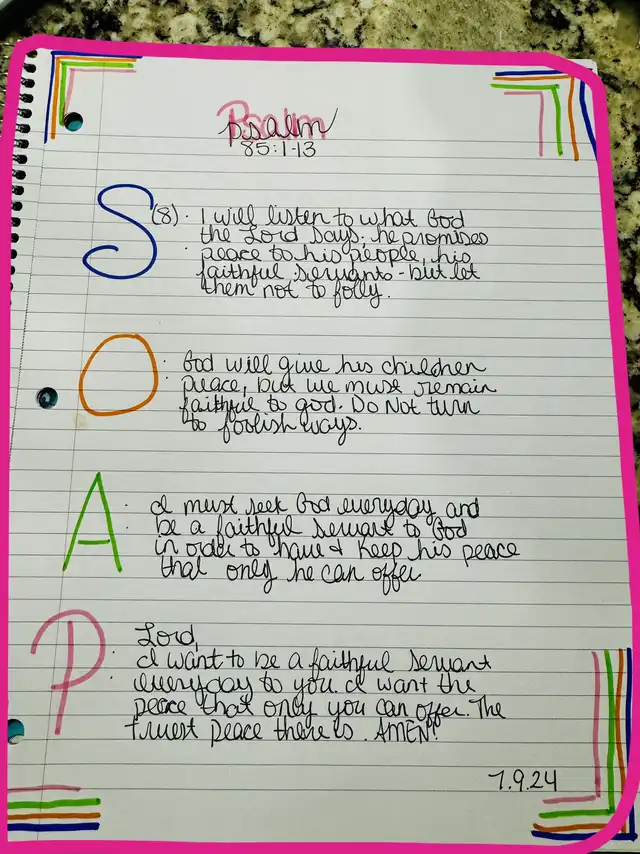 Psalm
85:1-13
S (8). I will listen to what God
the Lord says; he promises
peace to his people, his
faithful servants - but let
them not to folly.
O God will give his children
peace, but we must remain
faithful to god. Do Not turn
to foolish ways.
A I must seek God everyday and
be a faithful servant to God
in order to have & keep his peace
that only he can offer
P Lord,
I want to be a faithful servant
everyday to you. I want the
peace that only you can offer. The
truest peace there is. AMEN!
7.9.24